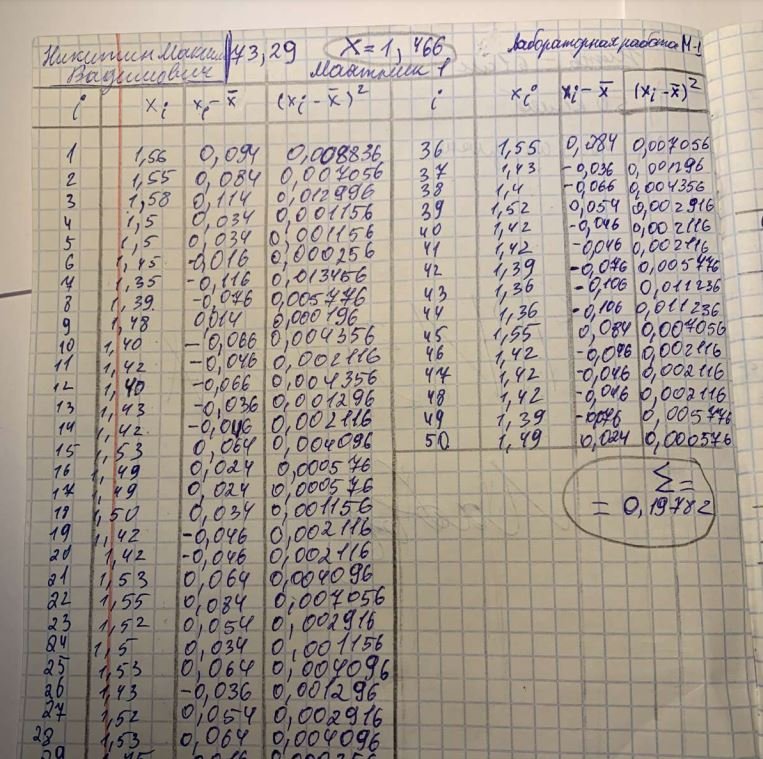 Никитин Максим 73,29 X=1,466 Лабораторная работа М-1
Вадимович Маятник 1
i xᵢ xᵢ-x̄ (xᵢ-x̄)² i xᵢ xᵢ-x̄ (xᵢ-x̄)²
1 1,56 0,094 0,008836 36 1,55 0,084 0,007056
2 1,55 0,084 0,007056 37 1,43 -0,036 0,001296
3 1,58 0,114 0,012996 38 1,4 -0,066 0,004356
4 1,5 0,034 0,001156 39 1,52 0,054 0,002916
5 1,5 0,034 0,001156 40 1,42 -0,046 0,002116
6 1,45 -0,016 0,000256 41 1,42 -0,046 0,002116
7 1,35 -0,116 0,013456 42 1,39 -0,076 0,005776
8 1,39 -0,076 0,005776 43 1,36 -0,106 0,011236
9 1,48 0,014 0,000196 44 1,36 -0,106 0,011236
10 1,40 -0,066 0,004356 45 1,55 0,084 0,007056
11 1,42 -0,046 0,002116 46 1,42 -0,046 0,002116
12 1,40 -0,066 0,004356 47 1,42 -0,046 0,002116
13 1,43 -0,036 0,001296 48 1,42 -0,046 0,002116
14 1,42 -0,046 0,002116 49 1,39 -0,076 0,005776
15 1,53 0,064 0,004096 50 1,49 0,024 0,000576
16 1,49 0,024 0,000576
17 1,49 0,024 0,000576 Σ=
18 1,50 0,034 0,001156 = 0,19782
19 1,42 -0,046 0,002116
20 1,42 -0,046 0,002116
21 1,53 0,064 0,004096
22 1,55 0,084 0,007056
23 1,52 0,054 0,002916
24 1,5 0,034 0,001156
25 1,53 0,064 0,004096
26 1,43 -0,036 0,001296
27 1,52 0,054 0,002916
28 1,53 0,064 0,004096